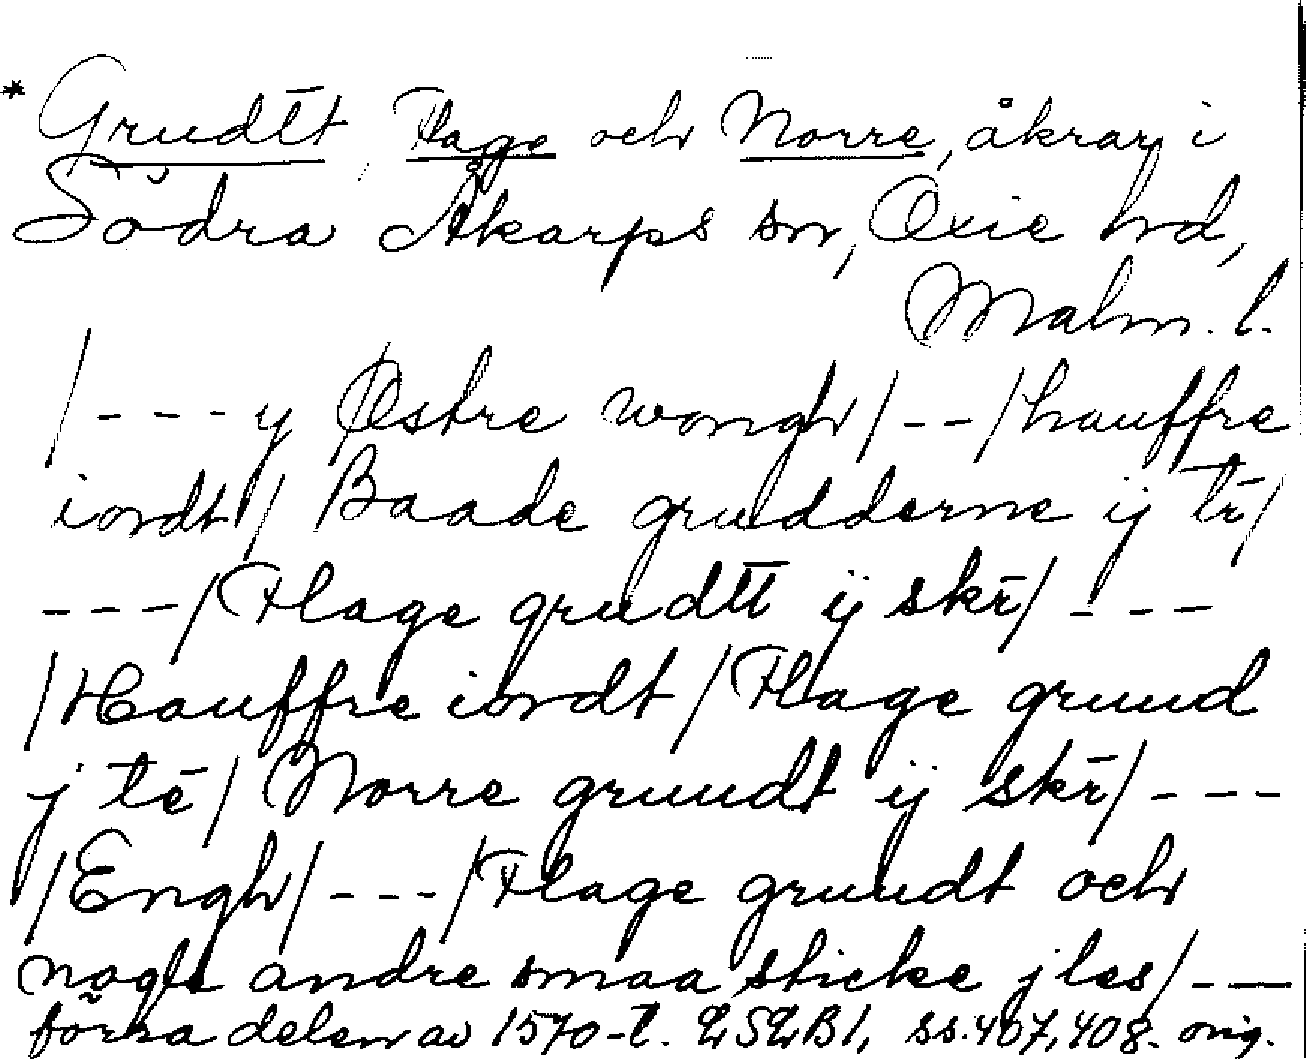 * Grudtt, Flage och Norre, åkrar i
Södra Åkarps sn, Oxie hd,
Malm. l.
/---y Østre wongh/--/hauffre
iordt/ Baade grudderne ij tr̄/
---/Flage grudtt ij skr̄/---
/Hauffre iordt/Flage gruud
j tē/ Norre gruudt ij skr̄/---
/Engh/---/Flage gruudt och
nogle andre smaa sticke j les/---
förra delen av 1570-t. LSLB1, ss. 407, 408. orig.